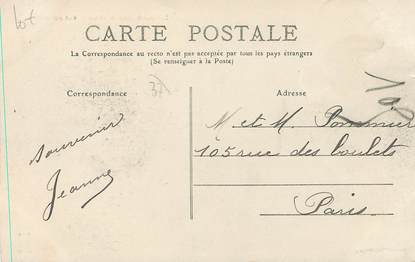 lot
CARTE POSTALE
La Correspondance au recto n'est pas acceptée par tous les pays étrangers
(Se renseigner à la Poste)
Correspondance
Adresse
souvenir
Jeanne
M et M. Pommier
105 rue des boulets
Paris